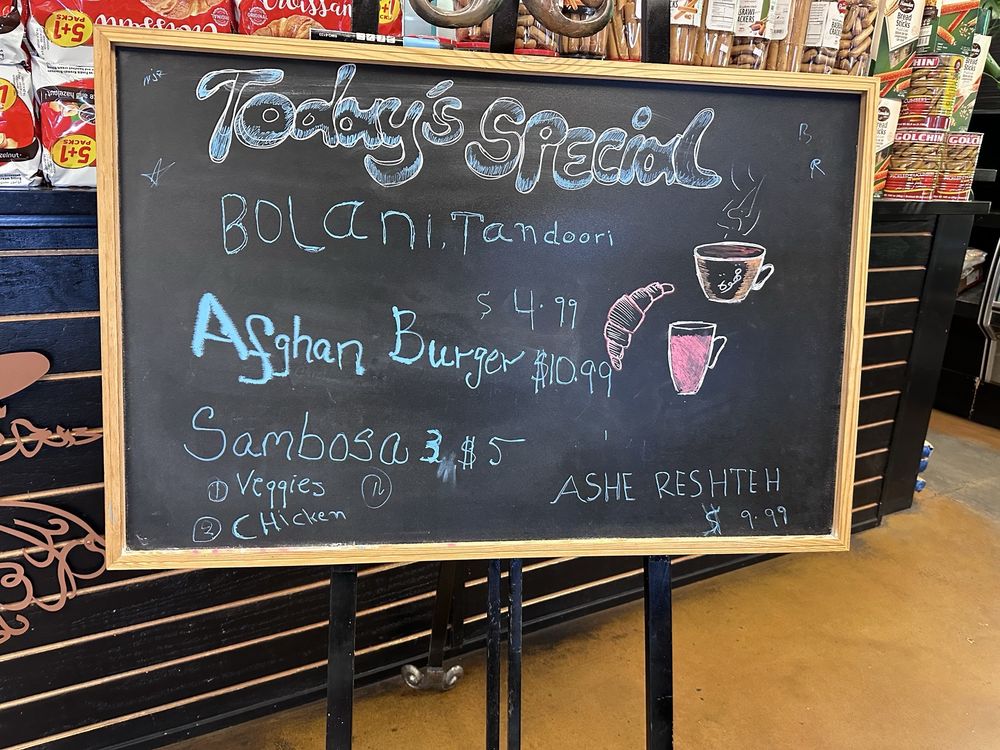 Croissant
5+1 PACKS
5+1 PACKS
Bread Sticks
CHIN
GOLCHIN
GOL
Today's Special
B
R
BOLANI, Tandoori
$ 4.99
Afghan Burger $10.99
Sambosa 3 $5
① Veggies
② CHicken
ASHE RESHTEH
$ 9.99